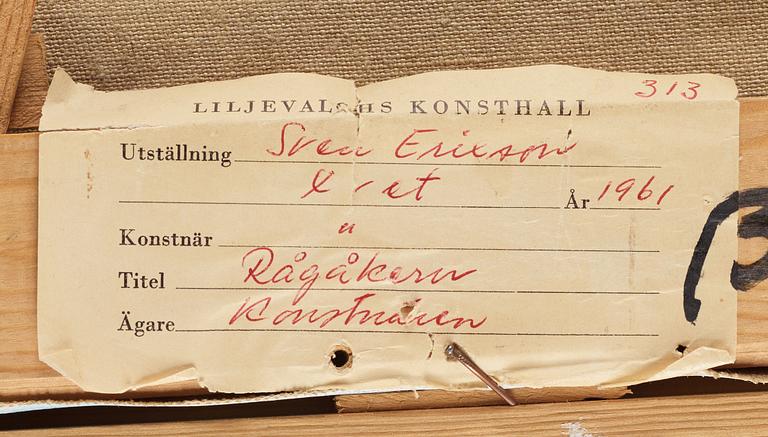 313
LILJEVALCHS KONSTHALL
Utställning Sven Erixson
X-et År 1961
Konstnär "
Titel Rågåkern
Ägare Konstnären